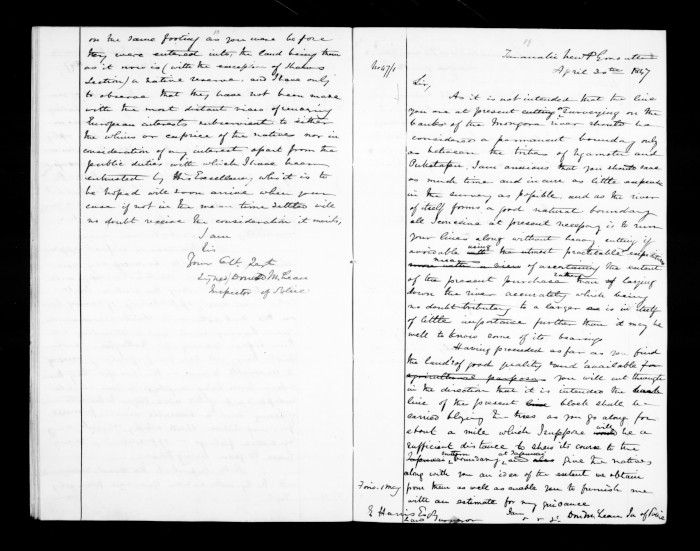 on the same footing as you were before
they were entered into, the land being then
as it now is (with the exception of
Section) a native reserve, and I have only
to observe that they have not been made
with the most distant views of
European interests subservient to either
the whims or caprice of the natives nor in
consideration of my interest apart from the
public duties with which I have been
entrusted by His Excellency, which it is to
be hoped will soon arrive when your
case if not in the mean time settled will
no doubt receive the consideration it merits,
I am
Sir
Your Obt Servt
Signed Donald McLean
Inspector of Police
19
Taranaki New P
April 30th 1847
No 47/1
Sir,
As it is not intended that the line
you are at present cutting Surveying on the
banks of the river should be
considered a permanent boundary only
as between the tribes of Ngamotu and
Puketapu, I am anxious that you should save
as much time and incur as little expense
in the survey as possible, and as the river
of itself forms a good natural boundary
all I conceive at present necessary is to run
your lines along without heavy cutting if
avoidable using with the utmost practicable expedition
more with a view of ascertaining the extent
means
of the present purchase rather than of laying
down the river accurately which being
no doubt tributary to a larger is in itself
of little importance further than it may be
well to know some of its bearings.
Having proceeded as far as you find
the land of good quality and available for
agricultural purposes you will cut through
in the direction that it is intended the
line of the present line block shall be
carried blazing the trees as you go along for
about a mile which I suppose will be a
sufficient distance to shew its course to the
boundary and give the natives
along with you an idea of the extent we obtain
from them as well as enable you to furnish me
with an estimate for my guidance
I am
&c &c Don McLean In of Police
Fors. 1 May
E Harris Esqr